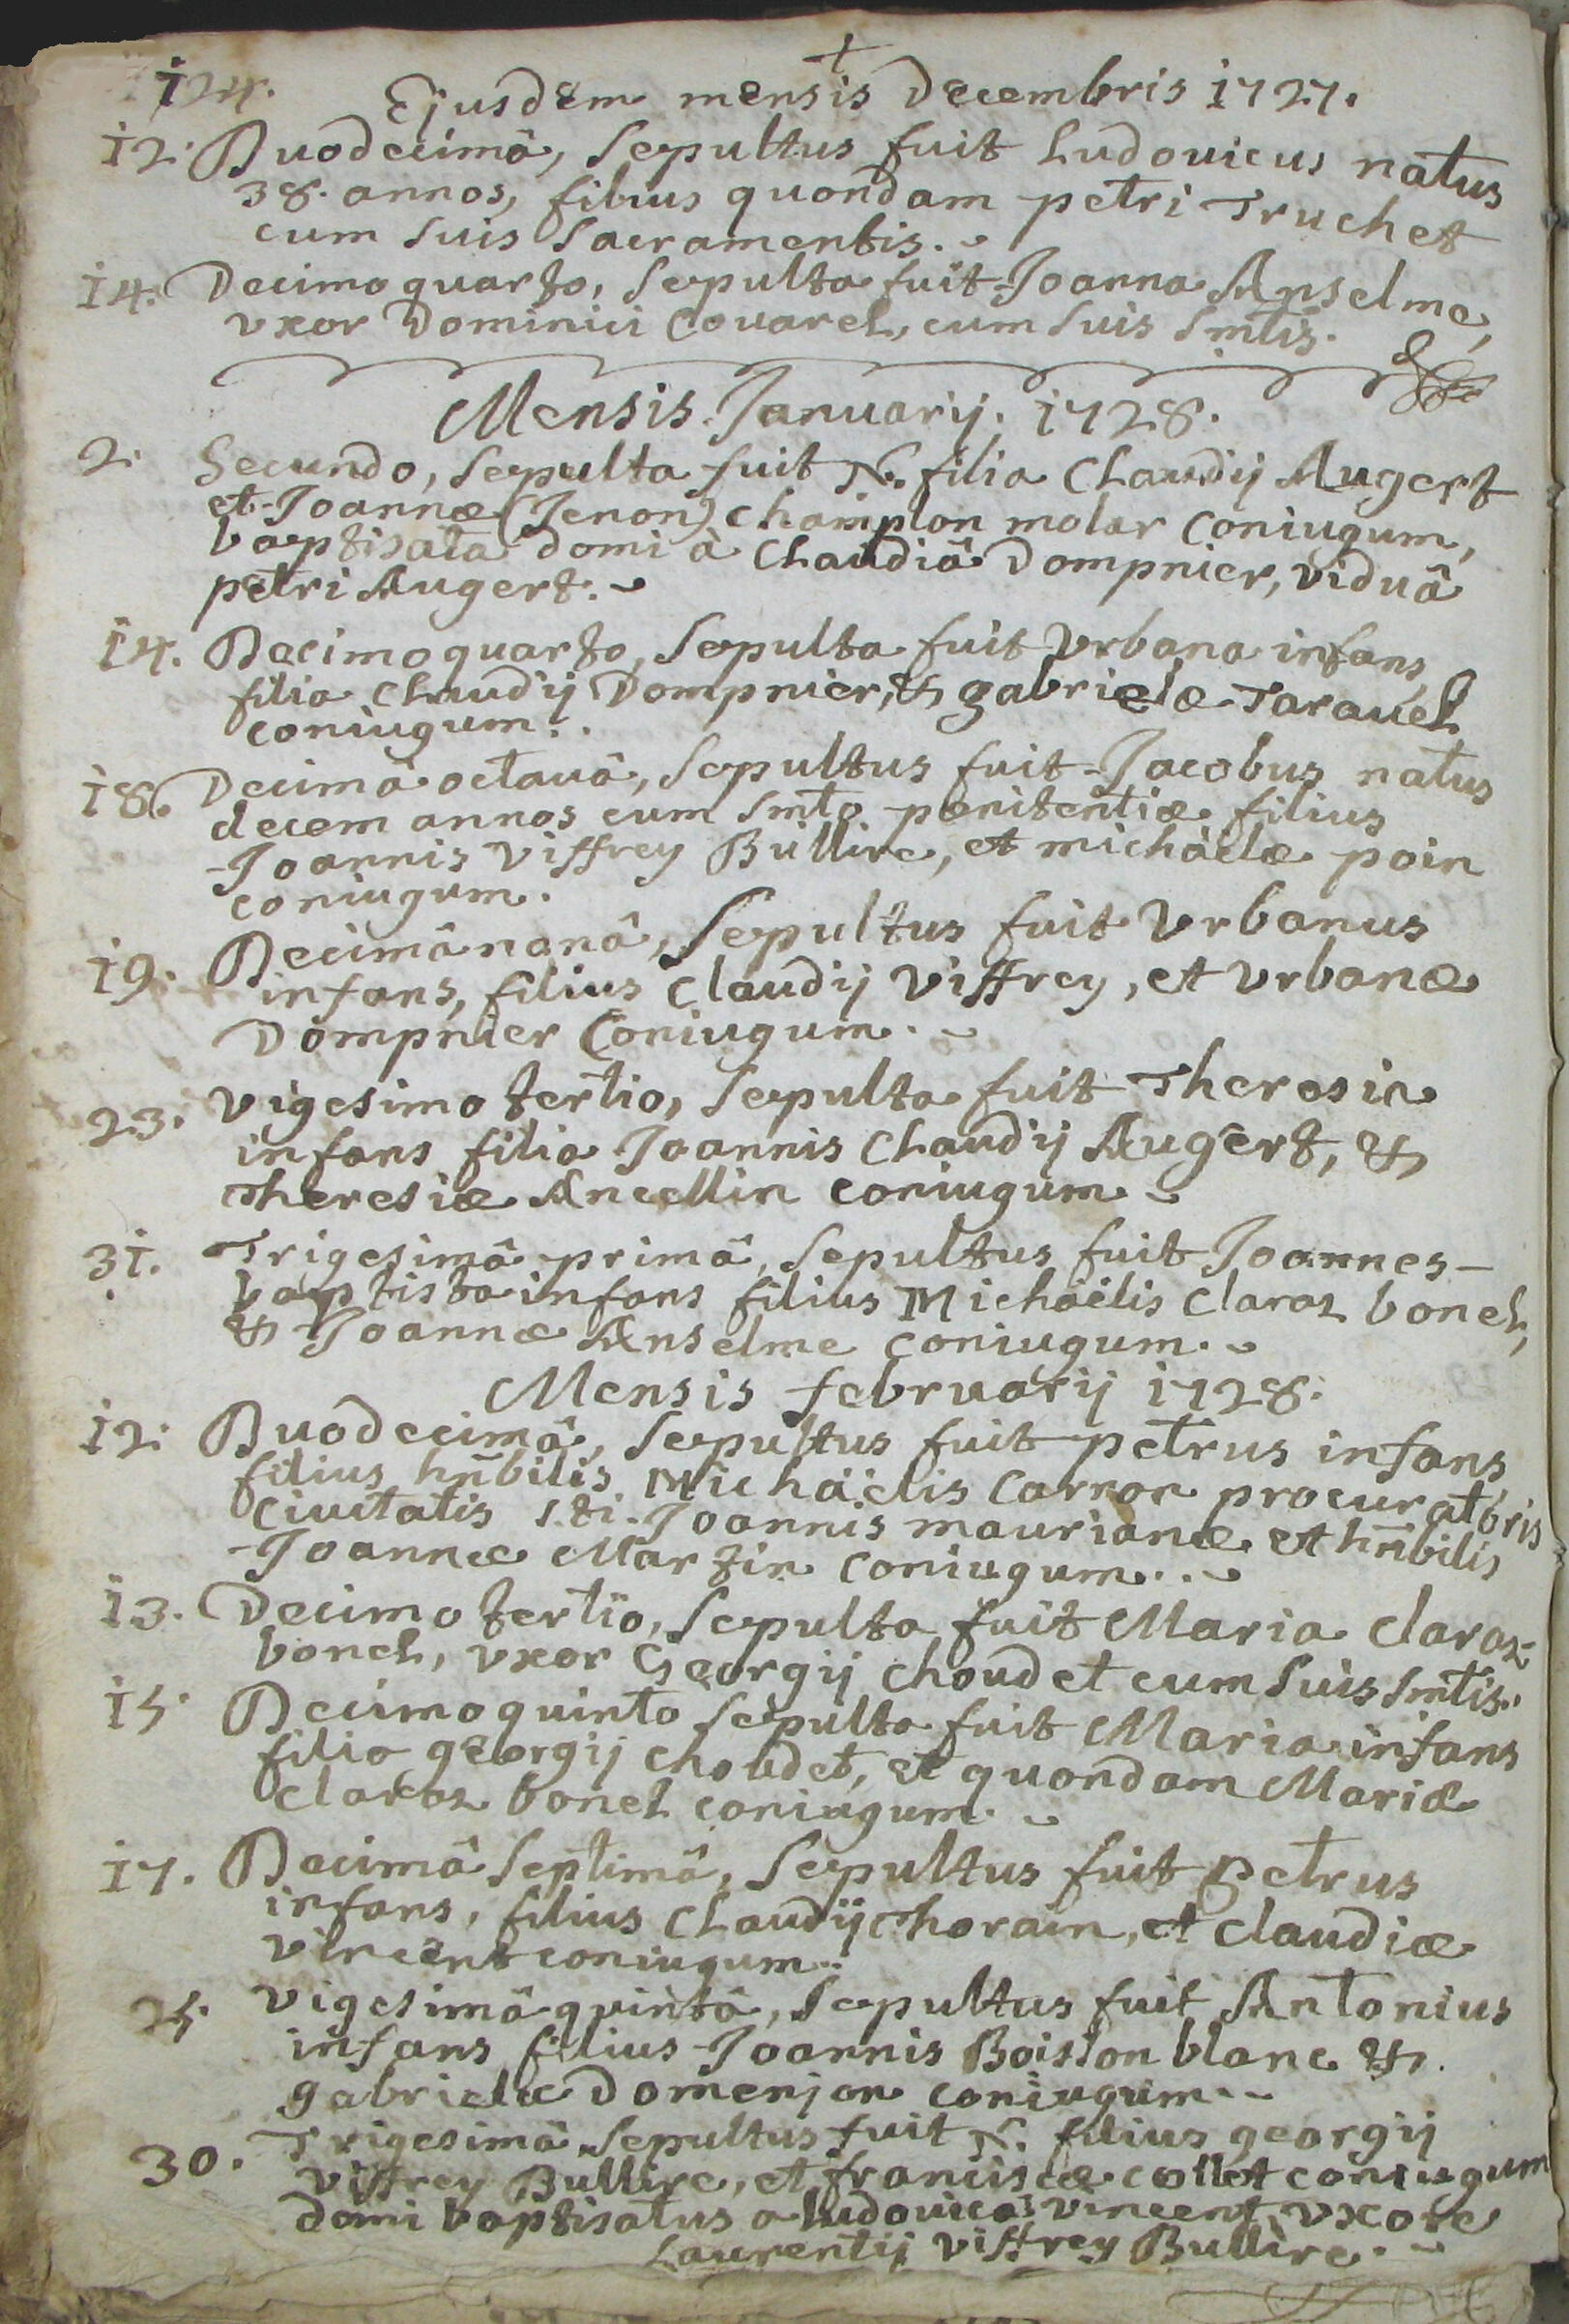 124.
+
Ejusdem mensis Decembris 1727.
12. Duodecimâ, Sepultus fuit Ludovicus natus
38. annos, filius quondam petri Truchet
cum suis sacramentis.
14. Decimo quarto, Sepulta fuit Joanna Anselme,
vxor Dominici Covarel, cum suis Smtis.
Mensis Januarij. 1728.
2. Secundo, Sepulta fuit N. filia Claudij Augert
et Joannæ (Jenon) champlon molar Coniugum,
baptisata domi à Claudiâ Dompnier, viduâ
petri Augert.
14. Decimo quarto, Sepulta fuit Vrbana infans
filia Claudij Dompnier, & gabrielæ Taravel
coniugum.
18. Decimâ octauâ, Sepultus fuit Jacobus natus
decem annos cum Smto pænitentiæ filius
Joannis Viffrey Bullire, et michàelæ poin
coniugum.
19. Decimâ nonâ, Sepultus fuit Vrbanus
infans, filius Claudij Viffrey, et Vrbanæ
Dompnier Coniugum.
23. Vigesimo tertio, Sepulta fuit Theresia
infans filia Joannis Claudij Augert, &
Theresiæ Ancellin coniugum
31. Trigesimâ primâ, Sepultus fuit Joannes-
baptista infans filius Michàelis Claraz bonel,
& Joannæ Anselme coniugum.
Mensis februarij 1728.
12. Duodecimâ, Sepultus fuit petrus infans
filius hñbilis Michàelis Carron procuratoris
Civitatis S.ti Joannis maurianæ et hñbilis
Joannæ Martin coniugum..
13. Decimo tertio, Sepulta fuit Maria Claraz-
bonel, vxor Georgij Choudet cum Suis Smtis.
15 Decimo quinto Sepulta fuit Maria infans
filia georgij choudet, et quondam Mariæ
Claraz bonel coniugum.
17. Decimâ Septimâ, Sepultus fuit petrus
infans, filius Claudij Thorain, et Claudiæ
Vincent coniugum..
25. Vigesimâ quintâ, Sepultus fuit Antonius
infans filius Joannis Boisson blanc &
gabrielæ Domenjon coniugum.
30. Trigesimâ Sepultus fuit N. filius georgij
Viffrey Bullire, et franciscæ collet coniugum
domi baptisatus a Ludovica Vincent, vxore
Laurentij Viffrey Bullire.